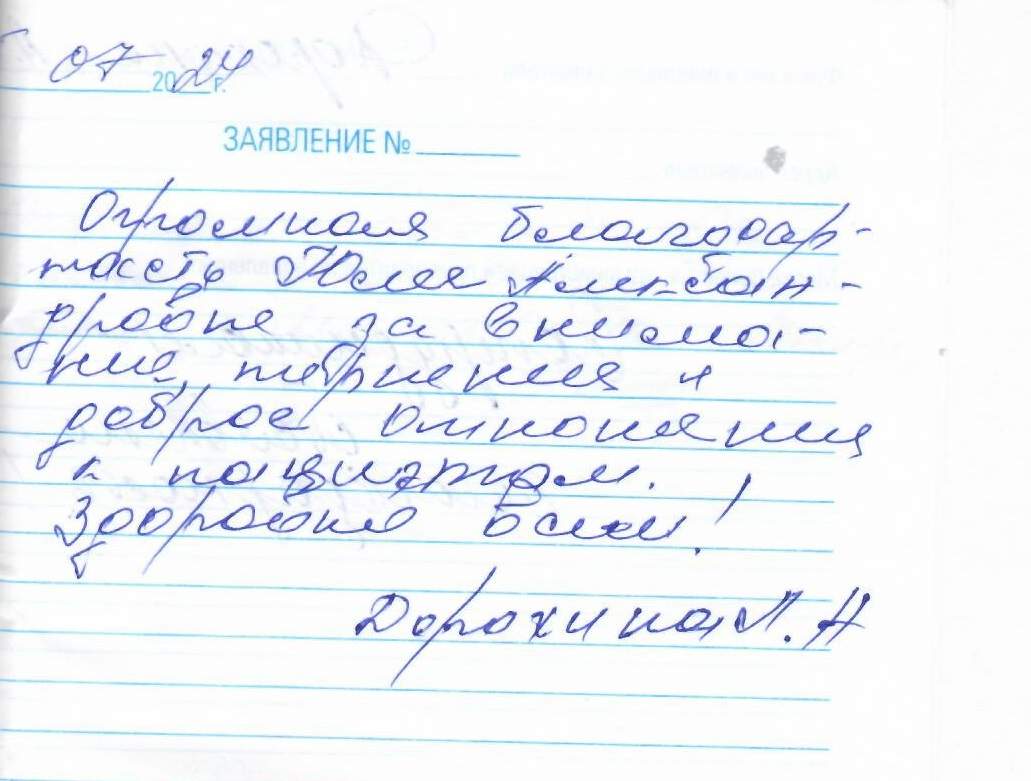 07 2024г.
ЗАЯВЛЕНИЕ №
Огромная благодар-
ность Юлие Алексан-
дровне за внима-
ние, терпения и
доброе отношения
к пациентам.
Здоровья всем!
Дорохина Л.Н